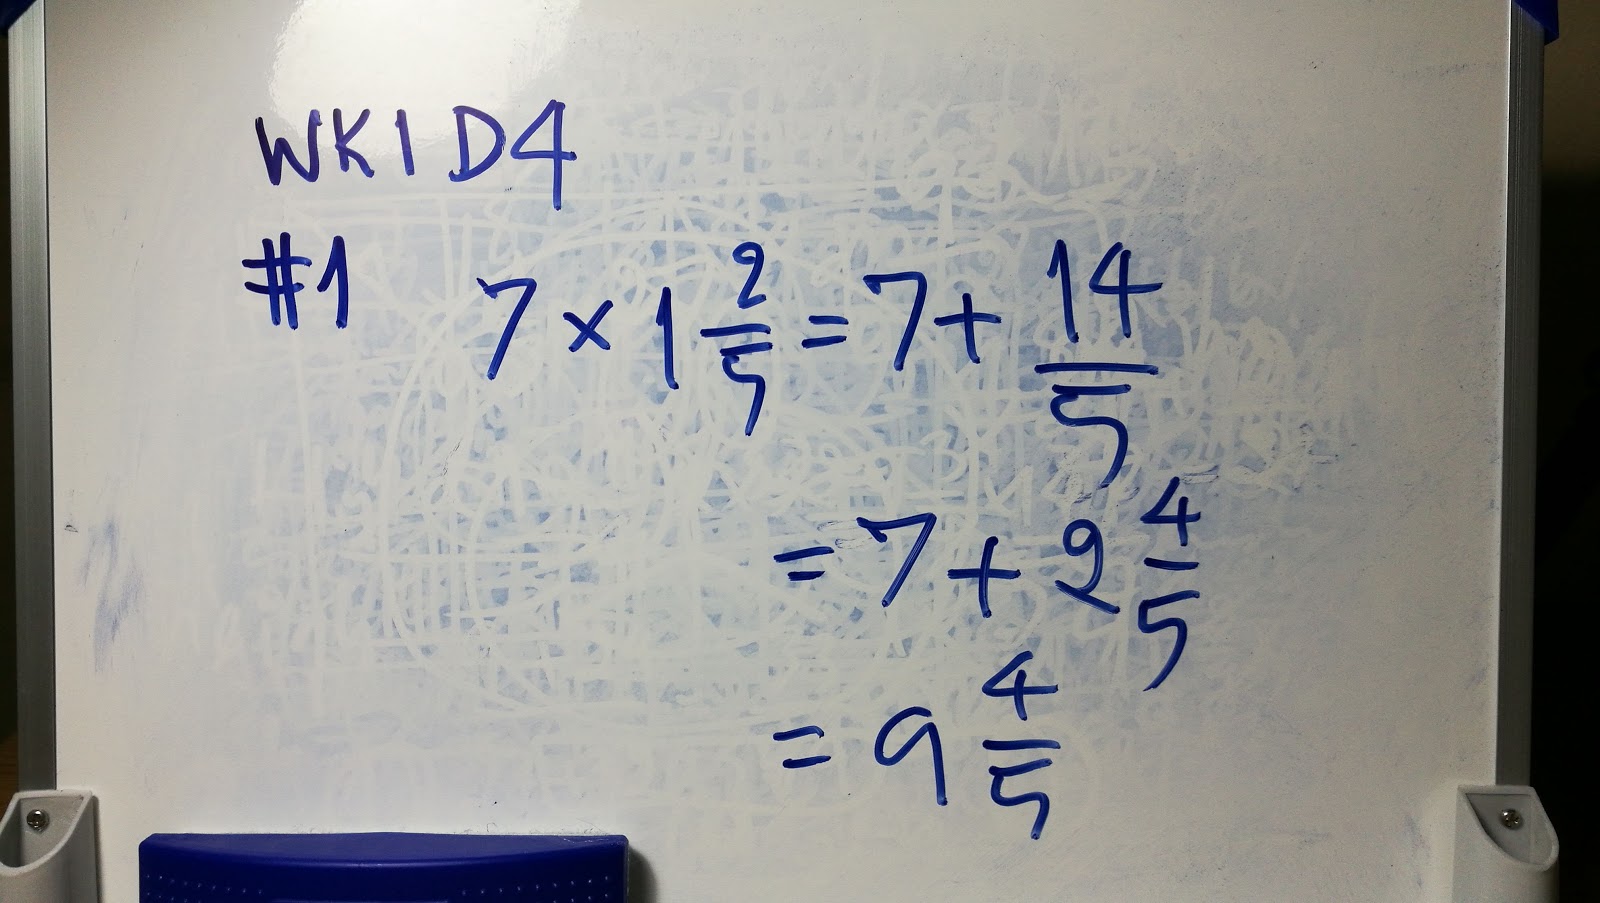 WK1 D4
#1 7 × 1 2/5 = 7 + 14/5
= 7 + 2 4/5
= 9 4/5